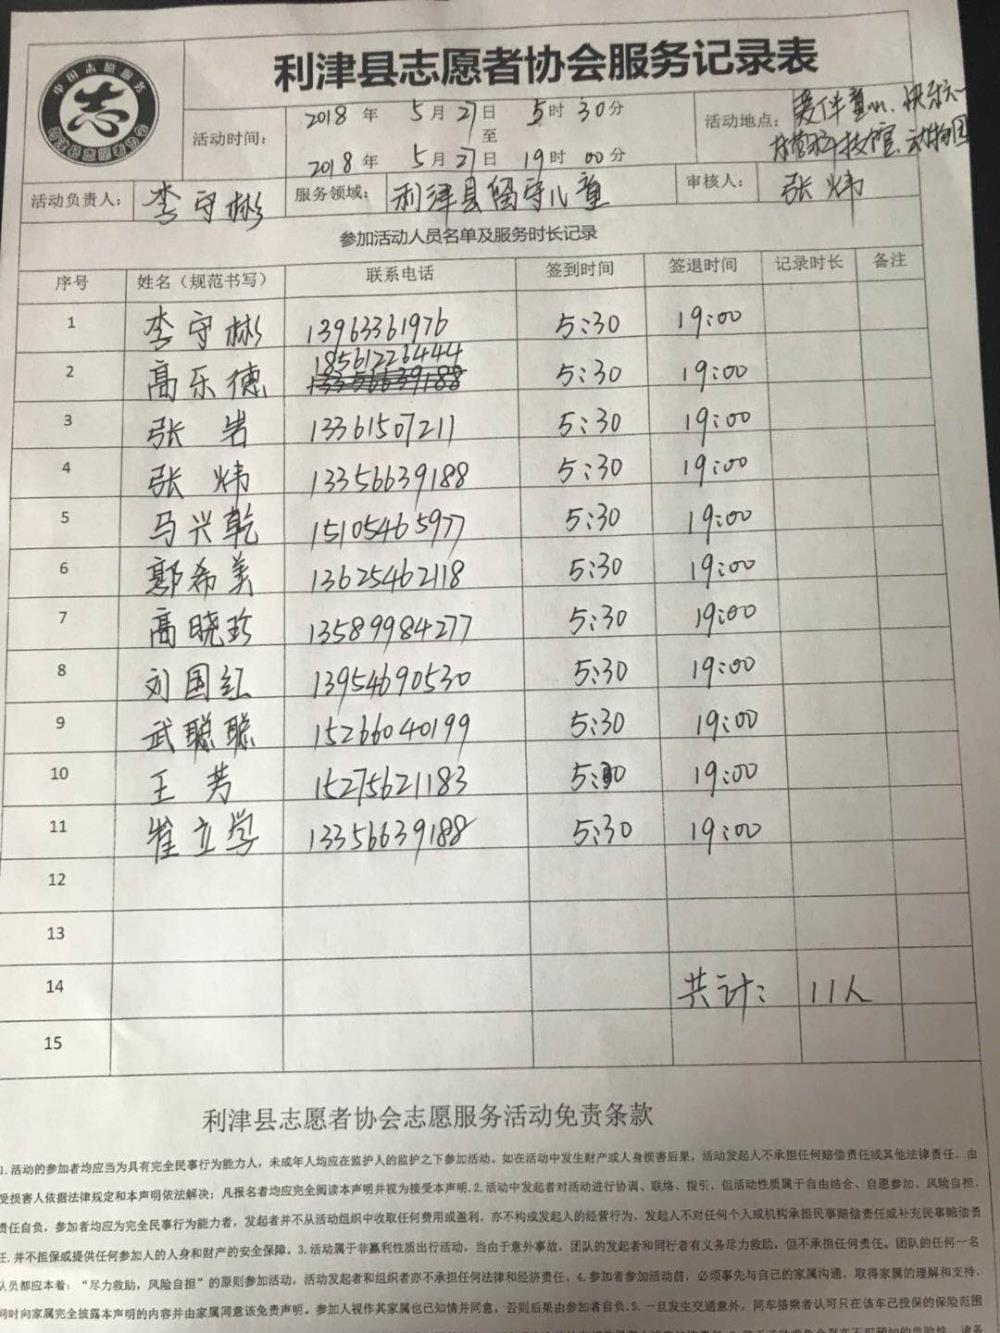 中国志愿服务
志
利津县志愿者协会服务记录表
活动时间：
2018 年 5 月 27 日 5 时 30 分
至
2018 年 5 月 27 日 19 时 00 分
活动地点：
快乐六一
科技馆、动物园
活动负责人： 李守彬 服务领域： 利津县留守儿童 审核人： 张炜
参加活动人员名单及服务时长记录
序号 姓名（规范书写） 联系电话 签到时间 签退时间 记录时长 备注
1 李守彬 13963361976 5:30 19:00
2 高乐德 18561226444 13356639188 5:30 19:00
3 张岩 13361507211 5:30 19:00
4 张炜 13356639188 5:30 19:00
5 马兴乾 15105465977 5:30 19:00
6 郭希美 13625462118 5:30 19:00
7 高晓珍 13589984277 5:30 19:00
8 刘国红 13954690530 5:30 19:00
9 武聪聪 15266040199 5:30 19:00
10 王芳 15275621183 5:30 19:00
11 崔立学 13356639188 5:30 19:00
12
13
14 共计： 11人
15
利津县志愿者协会志愿服务活动免责条款
1.活动的参加者均应当为具有完全民事行为能力人，未成年人均应在监护人的监护之下参加活动。如在活动中发生财产或人身损害后果，活动发起人不承担任何赔偿责任或其他法律责任，由
受损害人依据法律规定和本声明依法解决；凡报名者均应完全阅读本声明并视为接受本声明.2.活动中发起者对活动进行协调、联络、指引，但活动性质属于自由结合、自愿参加、风险自担、
责任自负，参加者均应为完全民事行为能力者，发起者并不从活动组织中收取任何费用或盈利，亦不构成发起人的经营行为，发起人不对任何个人或机构承担民事赔偿责任或补充民事赔偿责
任.并不担保或提供任何参加人的人身和财产的安全保障。3.活动属于非赢利性质出行活动，当由于意外事故，团队的发起者和同行者有义务尽力救助，但不承担任何责任。团队的任何一名
队员都应本着：“尽力救助，风险自担”的原则参加活动，活动发起者和组织者亦不承担任何法律和经济责任。4.参加者参加活动前，必须事先与自己的家属沟通，取得家属的理解和支持。
同时向家属完全披露本声明的内容并由家属同意该免责声明。参加人视作其家属也已知情并同意，否则后果由参加者自负.5.一旦发生交通意外，同车搭乘者认可只在该车已投保的保险范围